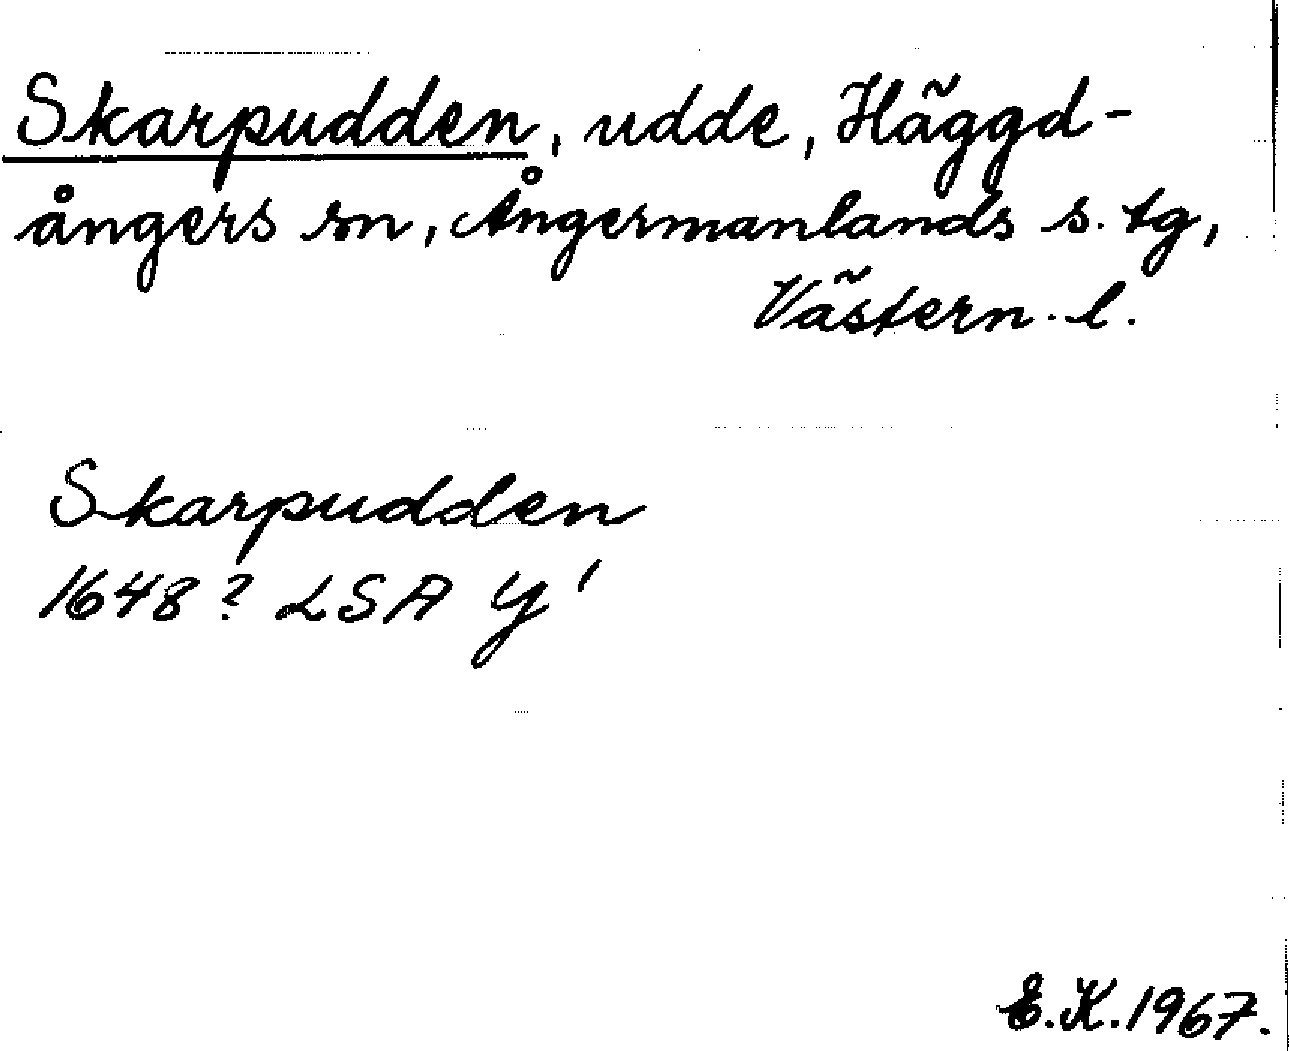 Skarpudden, udde, Häggd-
ångers sn, Ångermanlands s. tg,
Västern. l.
Skarpudden
1648? LSA Y'
E.K. 1967.